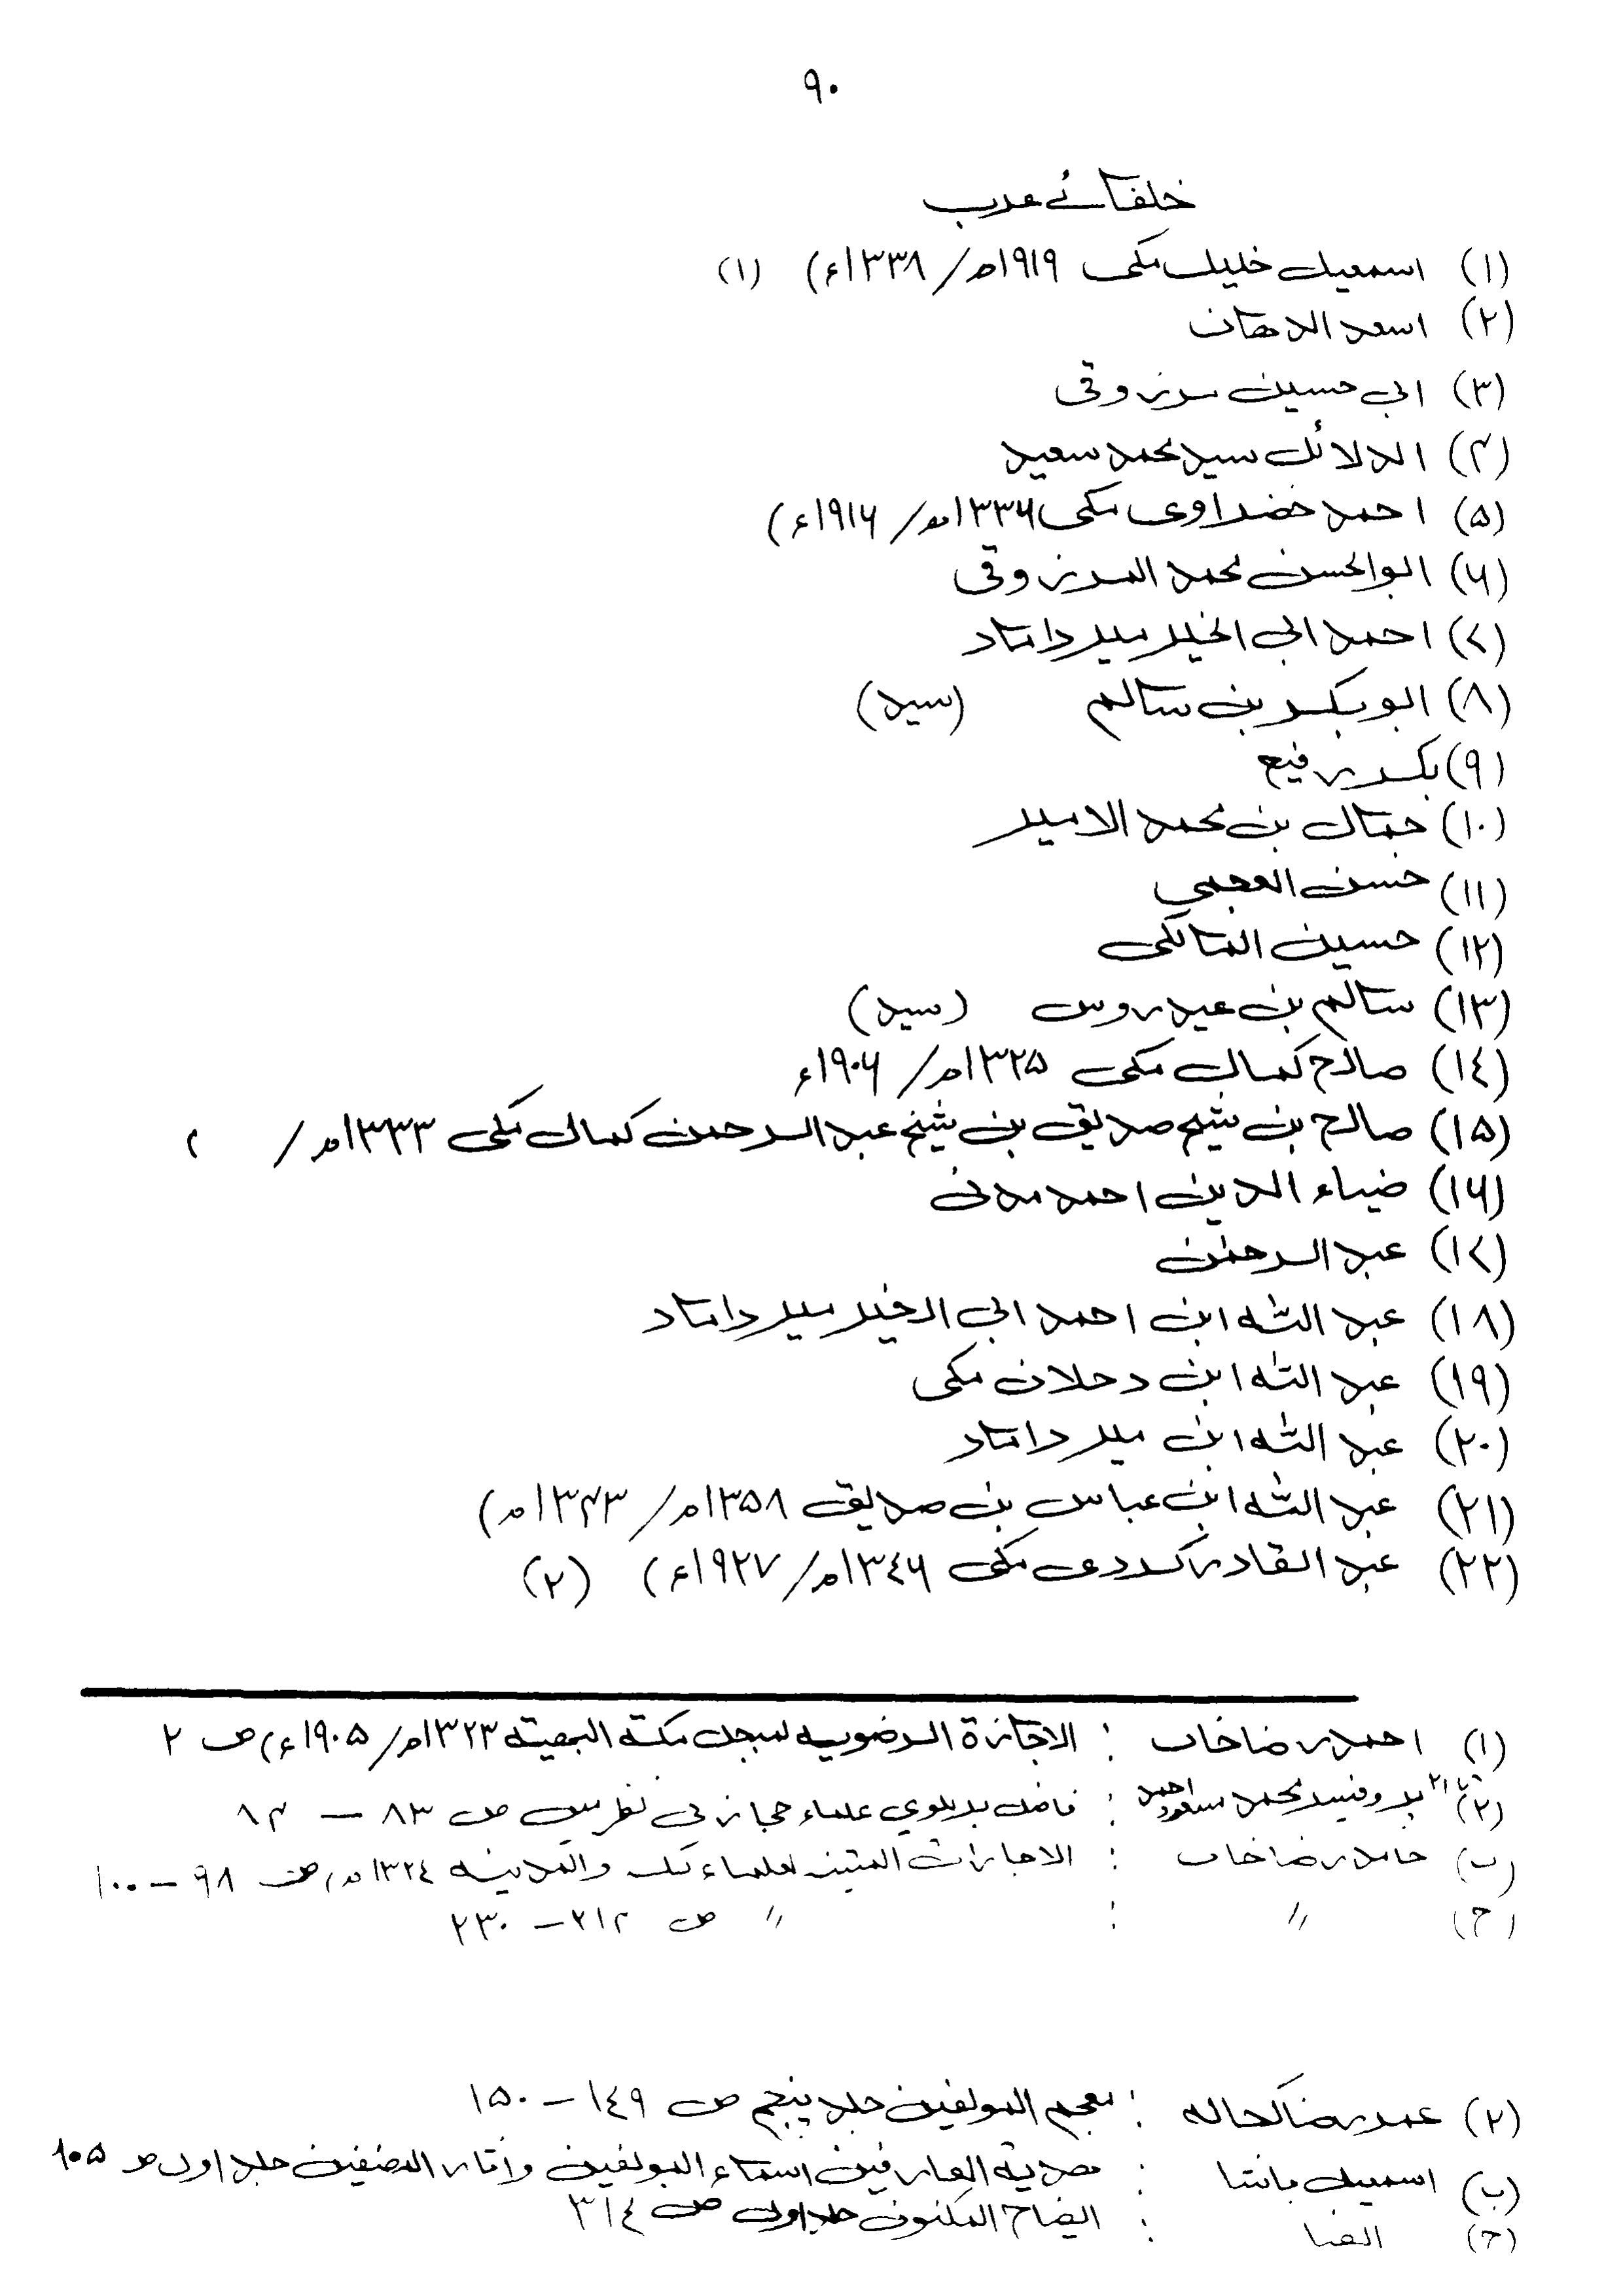 ۹۰
خلفائے عرب
(۱) اسمعیل خلیل مکی ۱۹۱۹ھ/ ۱۳۳۸ء) (۱)
(۲) اسعد الدھان
(۳) ابی حسین مرزوقی
(۴) الدلائل سید محمد سعید
(۵) احمد خضراوی مکی ۱۳۳۶ھ/ ۱۹۱۶ء)
(۶) ابوالحسن محمد المرزوقی
(۷) احمد ابی الخیر میر داماد
(۸) ابو بکر بن سالم (سید)
(۹) بکر رفیع
(۱۰) جمال بن محمد الامیر
(۱۱) حسن العجمی
(۱۲) حسین المالکی
(۱۳) سالم بن عیدروس (سید)
(۱٤) صالح کمال مکی ۱۳۲۵ھ/ ۱۹۰۶ء
(۱۵) صالح بن شیخ صدیق بن شیخ عبدالرحمن کمال مکی ۱۳۳۳ھ/ ء
(۱۶) ضیاء الدین احمد مدنی
(۱۷) عبد الرحمٰن
(۱۸) عبد اللہ ابن احمد ابی الخیر میر داماد
(۱۹) عبد اللہ ابن دحلان مکی
(۲۰) عبد اللہ ابن میر داماد
(۲۱) عبد اللہ ابن عباس بن صدیق ۱۳۵۸ھ/ ۱۳۴۳ھ)
(۲۲) عبد القادر کردی مکی ۱۳٤۶ھ/ ۱۹۲۷ء) (۲)
(۱) احمد رضا خاں : الاجازة الرضویہ لمبجل مکتہ البھیتہ ۱۳۲۳ھ/ ۱۹۰۵ء) ص ۲
(۲) پروفیسر محمد مسعود احمد : فاضل بریلوی علماء حجاز کی نظر میں ص ۸۳ – ۸۴
(ب) حامد رضا خاں : الاجازات المتینہ لعلماء بکہ والمدینہ ۱۳۲٤ھ، ص ۹۸ – ۱۰۰
(ج) // : // ص ۲۱۴ – ۲۳۰
(۲) عمر رضا کحالہ : معجم المولفین جلد پنجم ص ۱٤۹ – ۱۵۰
(ب) اسمعیل باشا : ھدیة العارفین اسماء المولفین و اثار المصنفین جلد اول ص ۶۰۵
(ج) ایضا : ایضاح المکنون جلد اول ص ۳۱٤